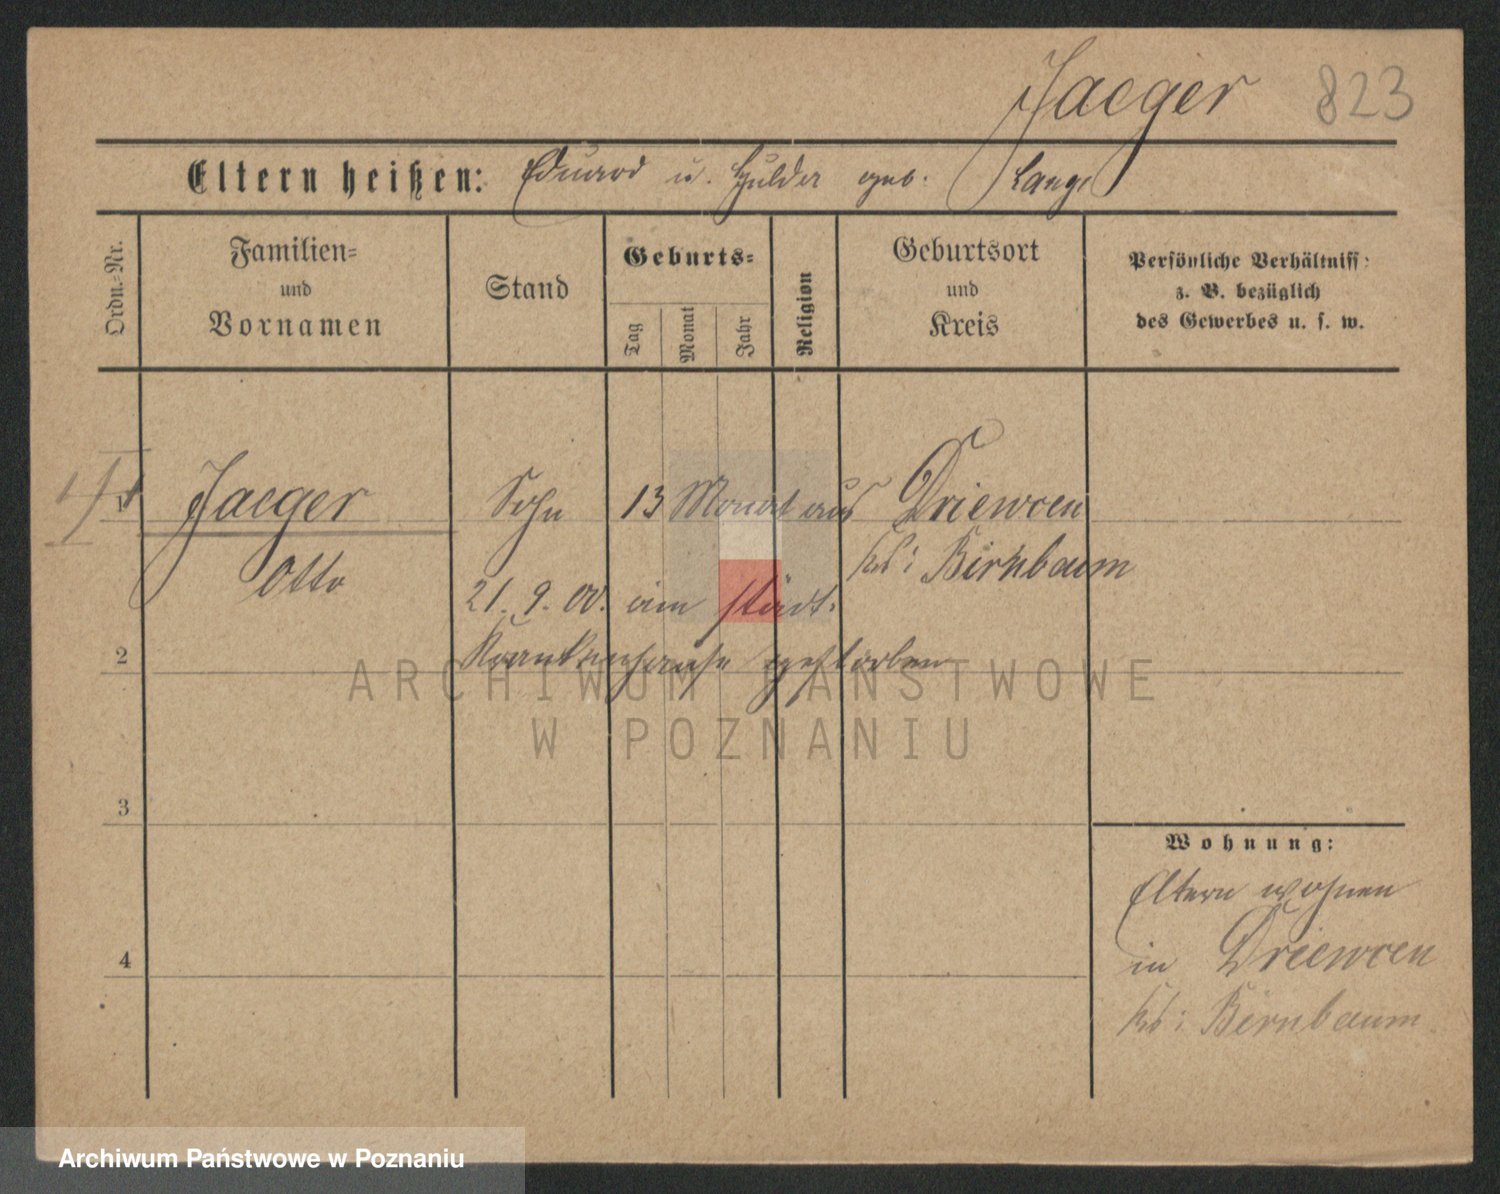 Jaeger 823
Eltern heißen: Eduard u. Hulda geb. Lange
Ordn.-Nr.
Familien-
und
Vornamen
Stand
Geburts-
Tag
Monat
Jahr
Religion
Geburtsort
und
Kreis
Persönliche Verhältniss:
z. B. bezüglich
des Gewerbes u. s. w.
1 Jaeger Sohn 13 Monat aus Driewcen
Otto
Krs: Birnbaum
21. 9. 00. im städt.
2 Krankenhause gestorben
3
4
Wohnung:
Eltern wohnen
in Driewcen
Krs: Birnbaum
ARCHIWUM PAŃSTWOWE
W POZNANIU
Archiwum Państwowe w Poznaniu